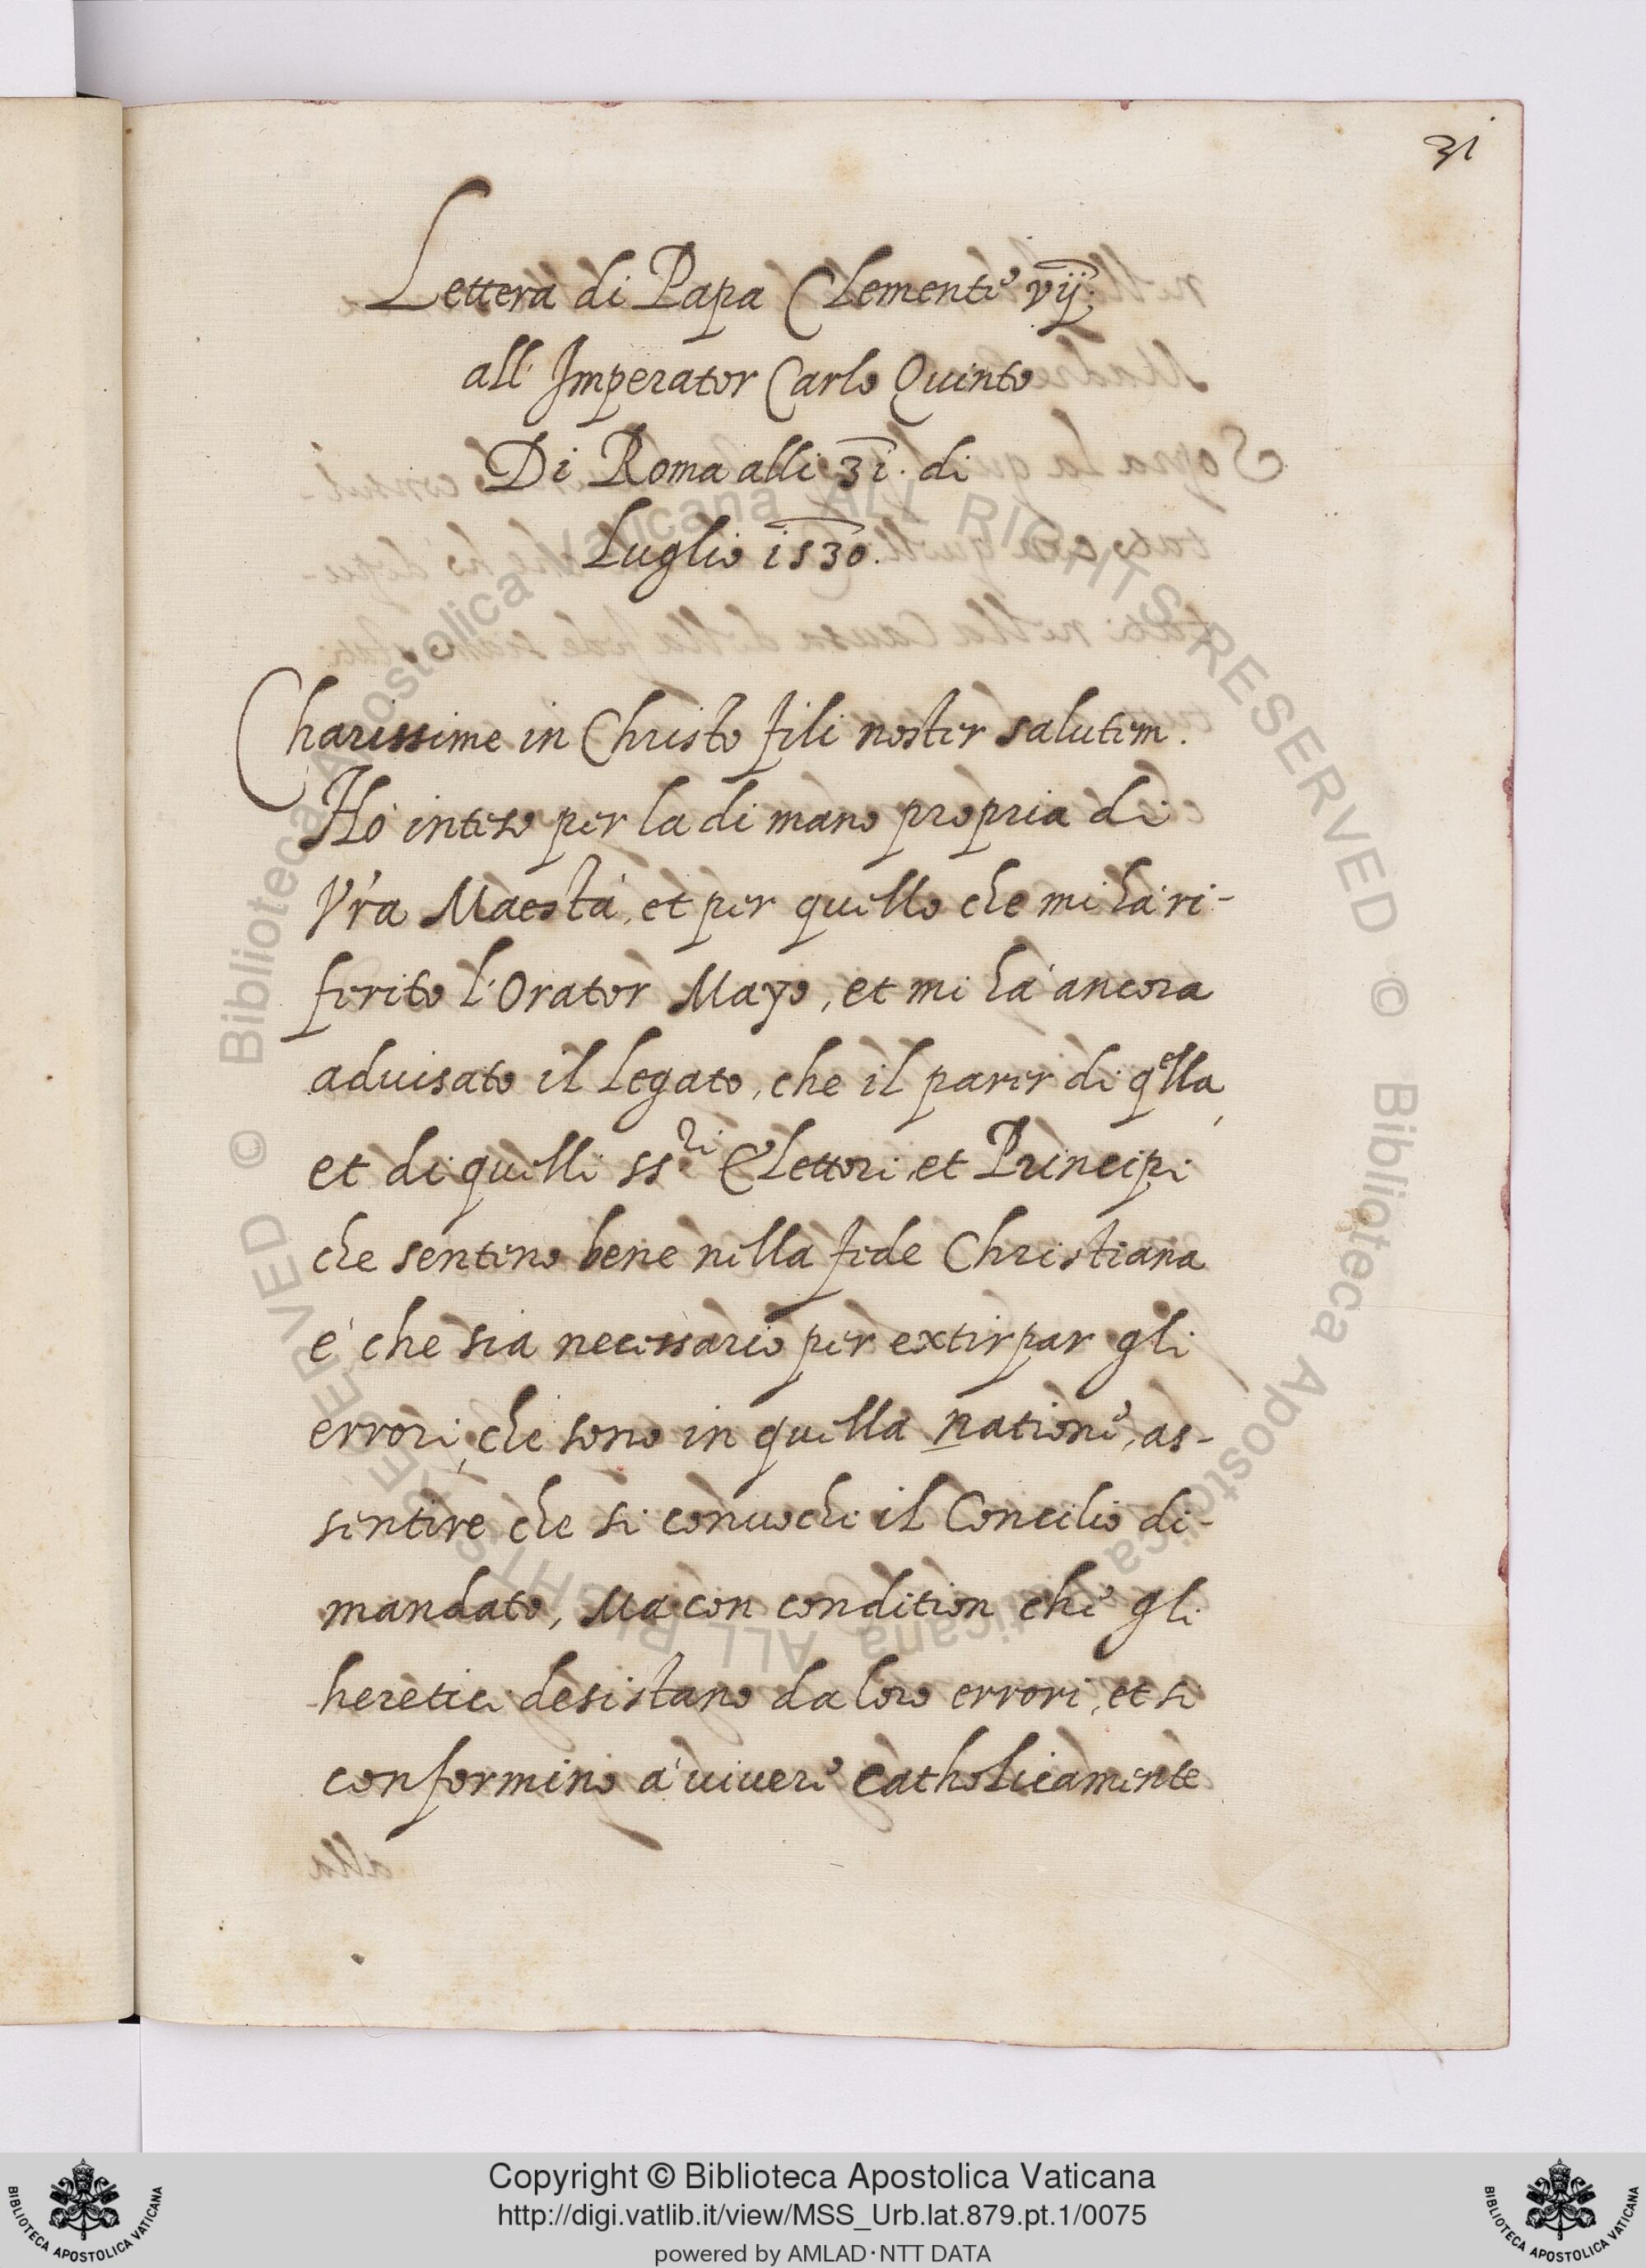 31
Lettera di Papa Clemente vij.
all' Imperator Carlo Quinto
Di Roma alli 31. di
Luglio 1530.
Charissime in Christo fili noster salutem.
Hò inteso per la di mano propria di
Vr̃a Maestà, et per quello che mi hà ri-
ferito l'Orator Mayo, et mi hà ancora
advisato il Legato, che il parer di q̃lla,
et di quelli ss.ri Elettori, et Principi
che senteno bene nella fede Christiana
è che sia necessario per extirpar gli
errori, che sono in quella natione, as-
sentire che si convochi il Concilio di-
mandato, Ma con condition che gli
heretici desistano da loro errori, et si
conformino à vivere catholicamente
© Biblioteca Apostolica Vaticana ALL RIGHTS RESERVED © Biblioteca Apostolica Vaticana ALL RIGHTS RESERVED
Copyright © Biblioteca Apostolica Vaticana
http://digi.vatlib.it/view/MSS_Urb.lat.879.pt.1/0075
powered by AMLAD·NTT DATA
BIBLIOTECA APOSTOLICA VATICANA
BIBLIOTECA APOSTOLICA VATICANA